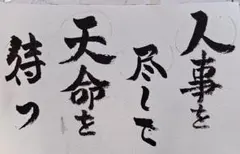 人事を
尽して
天命を
待つ